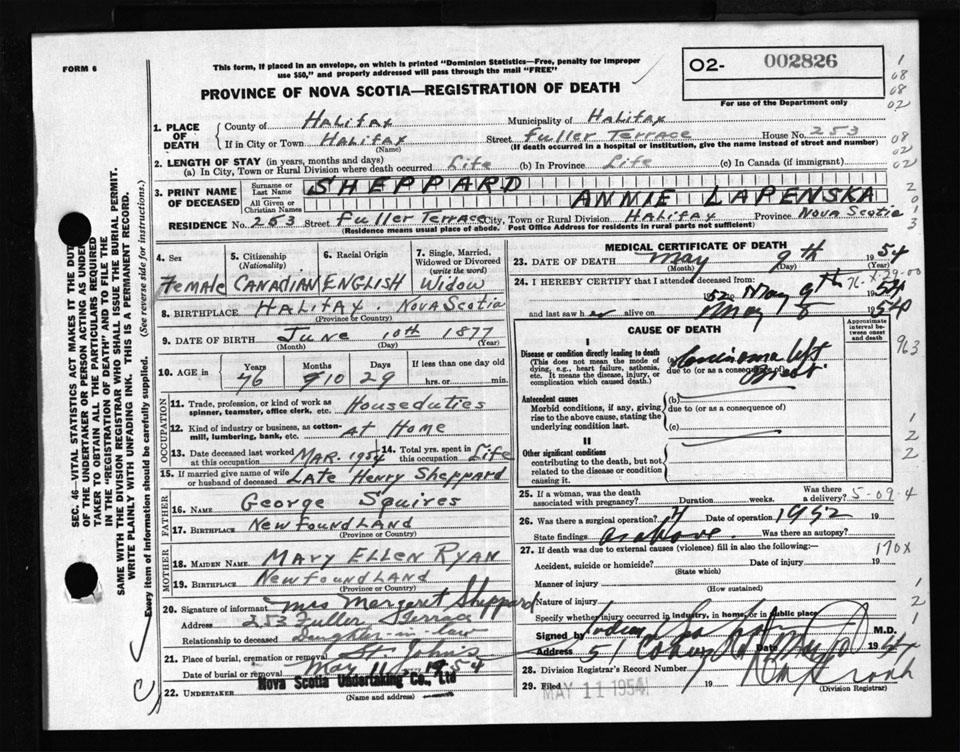 FORM 6
This form, if placed in an envelope, on which is printed "Dominion Statistics—Free, penalty for improper
use $50," and properly addressed will pass through the mail "FREE"
PROVINCE OF NOVA SCOTIA—REGISTRATION OF DEATH
O2- 002826
For use of the Department only
1
08
08
02
1. PLACE OF DEATH
County of Halifax Municipality of Halifax
If in City or Town Halifax Street Fuller Terrace House No. 253
(Name) (If death occurred in a hospital or institution, give the name instead of street and number)
08
02
02
2. LENGTH OF STAY (in years, months and days)
(a) In City, Town or Rural Division where death occurred Life (b) In Province Life (c) In Canada (if immigrant)
3. PRINT NAME OF DECEASED
Surname or Last Name SHEPPARD
All Given or Christian Names ANNIE LAPENSKA
2
0
1
3
RESIDENCE No. 253 Street Fuller Terrace City, Town or Rural Division Halifax Province Nova Scotia
(Residence means usual place of abode. Post Office Address for residents in rural parts not sufficient)
4. Sex Female
5. Citizenship (Nationality) CANADIAN
6. Racial Origin ENGLISH
7. Single, Married, Widowed or Divorced (write the word) Widow
8. BIRTHPLACE Halifax, Nova Scotia
(Province or Country)
9. DATE OF BIRTH June 10th 1877
(Month) (Day) (Year)
10. AGE in Years 76 Months 10 Days 29 If less than one day old hrs. or min.
OCCUPATION
11. Trade, profession, or kind of work as spinner, teamster, office clerk, etc. Houseduties
12. Kind of industry or business, as cotton-mill, lumbering, bank, etc. At Home
13. Date deceased last worked at this occupation Mar. 1954
14. Total yrs. spent in this occupation Life
15. If married give name of wife or husband of deceased Late Henry Sheppard
FATHER
16. NAME George Squires
17. BIRTHPLACE Newfoundland
(Province or Country)
MOTHER
18. MAIDEN NAME Mary Ellen Ryan
19. BIRTHPLACE Newfoundland
(Province or Country)
20. Signature of informant Mrs Margaret Sheppard
Address 253 Fuller Terrace
Relationship to deceased Daughter-in-Law
21. Place of burial, cremation or removal St John's
Date of burial or removal May 11 1954
22. UNDERTAKER Nova Scotia Undertaking Co., Ltd
(Name and address)
MEDICAL CERTIFICATE OF DEATH
23. DATE OF DEATH May 9th 1954
(Month) (Day) (Year)
24. I HEREBY CERTIFY that I attended deceased from:
76-X-29-00
52 to May 9th 1954
and last saw her alive on May 8 1954
CAUSE OF DEATH
Approximate interval between onset and death
963
I
Disease or condition directly leading to death
(This does not mean the mode of dying, e.g., heart failure, asthenia, etc. It means the disease, injury, or complication which caused death.)
(a) Carcinoma left Breast
due to (or as a consequence of)
Antecedent causes
Morbid conditions, if any, giving rise to the above cause, stating the underlying condition last.
(b)
due to (or as a consequence of)
(c)
1
2
2
II
Other significant conditions
contributing to the death, but not related to the disease or condition causing it.
25. If a woman, was the death associated with pregnancy? Duration weeks. Was there a delivery? 5-09-4
26. Was there a surgical operation? Date of operation 1952 19
State findings as above. Was there an autopsy?
27. If death was due to external causes (violence) fill in also the following:— 170X
Accident, suicide or homicide? Date of injury 19
(State which)
Manner of injury
(How sustained)
Nature of injury
1
2
Specify whether injury occurred in industry, in home, or in public place
Signed by M.D.
Address 51 Date May 10 1954
28. Division Registrar's Record Number
29. Filed MAY 11 1954 19
(Division Registrar)
SEC. 46—VITAL STATISTICS ACT MAKES IT THE DUTY
OF THE UNDERTAKER OR PERSON ACTING AS UNDER-
TAKER TO OBTAIN ALL THE PARTICULARS REQUIRED
IN THE "REGISTRATION OF DEATH" AND TO FILE THE
SAME WITH THE DIVISION REGISTRAR WHO SHALL ISSUE THE BURIAL PERMIT.
WRITE PLAINLY WITH UNFADING INK. THIS IS A PERMANENT RECORD.
Every item of information should be carefully supplied. (See reverse side for instructions.)